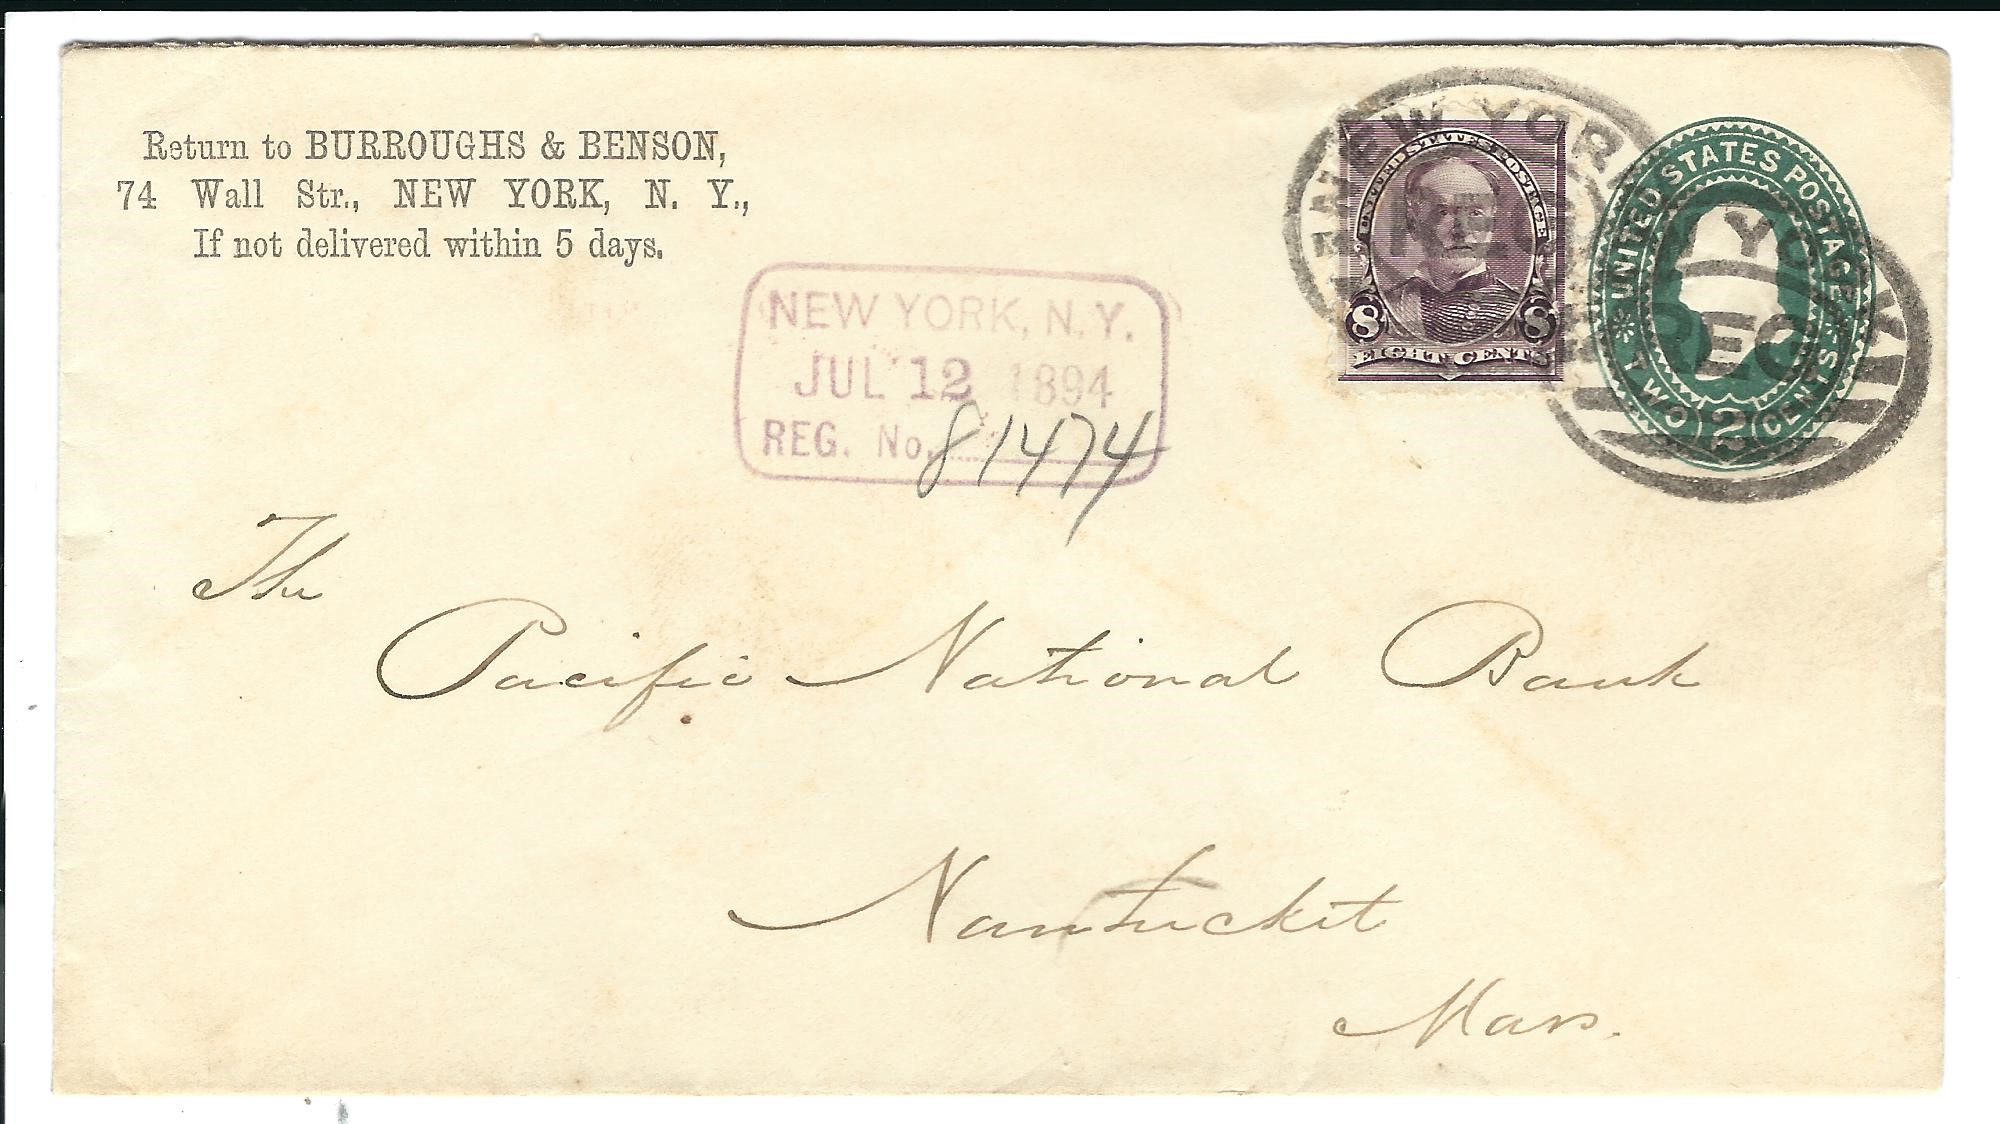 Return to BURROUGHS & BENSON,
74 Wall Str., NEW YORK, N. Y.,
If not delivered within 5 days.
NEW YORK, N. Y.
JUL 12 1894
REG. No. 81474
NEW YORK
REG
UNITED STATES POSTAGE
8 8
EIGHT CENTS
UNITED STATES POSTAGE
TWO 2 CENTS
YO
REG
The
Pacific National Bank
Nantucket
Mass.